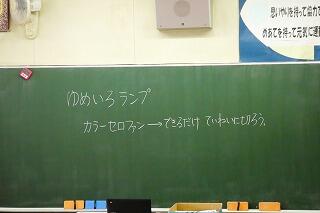 思いやりを持って協力で
めあてを持って元気に運動
ゆめいろランプ
カラーセロファン→できるだけ ていねいに切ろう。